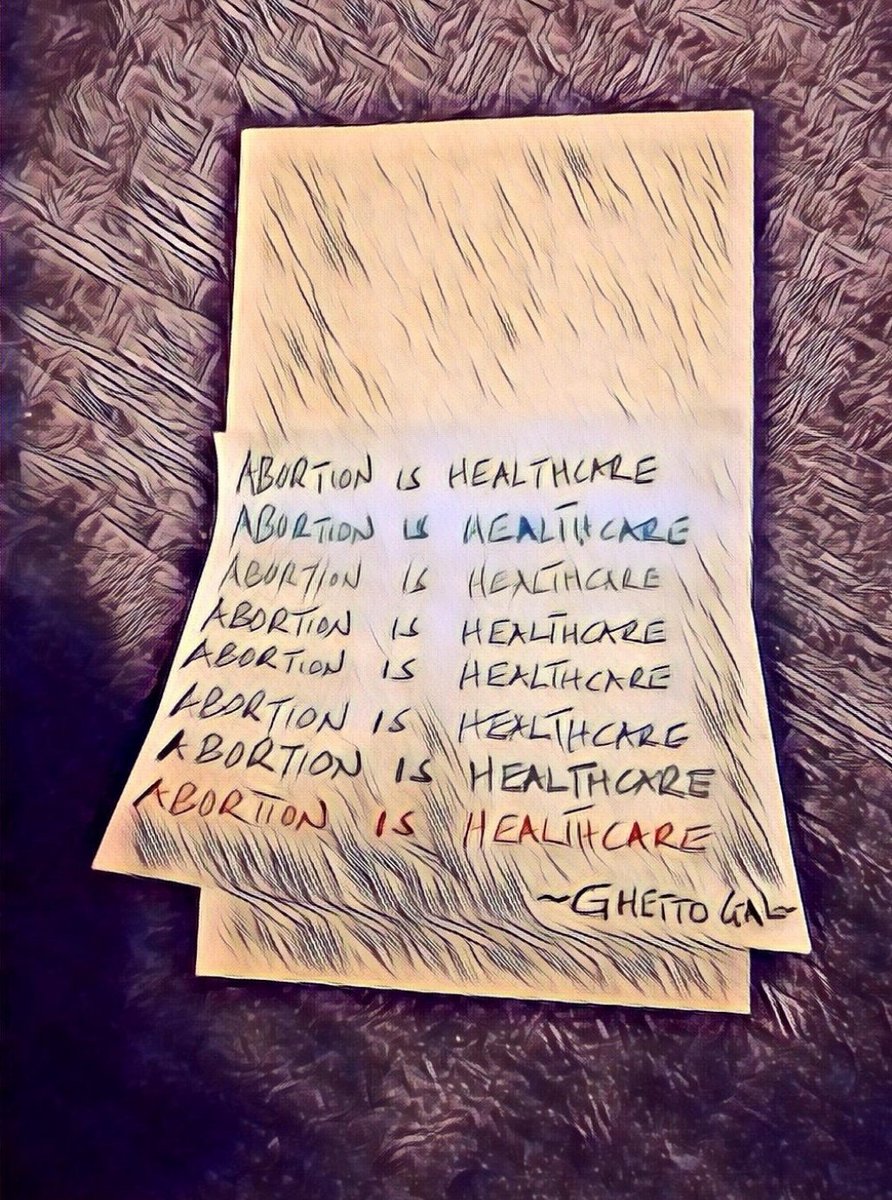 ABORTION IS HEALTHCARE
ABORTION IS HEALTHCARE
ABORTION IS HEALTHCARE
ABORTION IS HEALTHCARE
ABORTION IS HEALTHCARE
ABORTION IS HEALTHCARE
ABORTION IS HEALTHCARE
ABORTION IS HEALTHCARE
~GHETTO GAL~